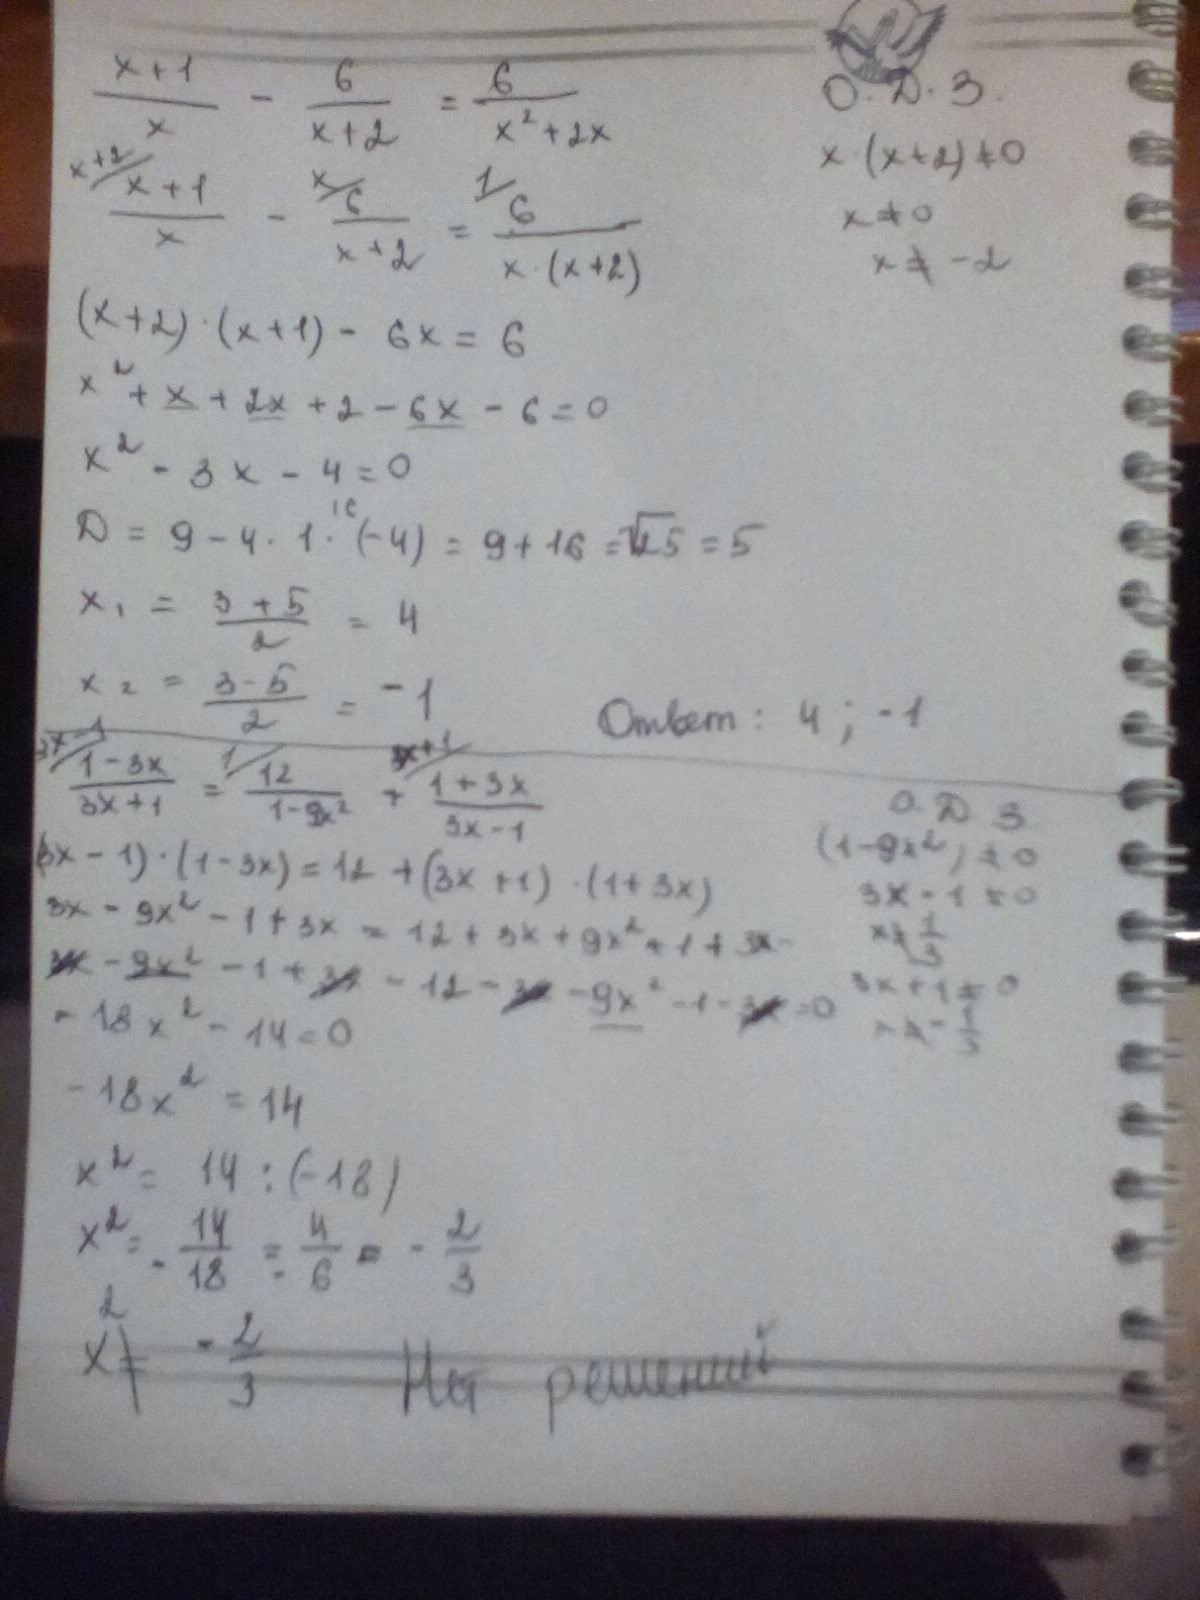 x+1/x - 6/x+2 = 6/x²+2x
О.Д.З.
x·(x+2)≠0
x≠0
x≠-2
x+2/ x+1/x - x/ 6/x+2 = 1/ 6/x·(x+2)
(x+2)·(x+1)- 6x = 6
x²+x+2x+2-6x-6=0
x²-3x-4=0
D = 9-4·1·(-4) = 9+16 = √25 = 5
x₁ = 3+5/2 = 4
x₂ = 3-5/2 = -1
Ответ: 4; -1
3x-1/ 1-3x/3x+1 = 1/ 12/1-9x² + 3x+1/ 1+3x/3x-1
О.Д.З
(1-9x²)≠0
3x-1≠0
x≠1/3
3x+1≠0
x≠-1/3
(3x-1)·(1-3x)=12+(3x+1)·(1+3x)
3x-9x²-1+3x=12+3x+9x²+1+3x
3x-9x²-1+3x-12-3x-9x²-1-3x=0
-18x²-14=0
-18x²=14
x²= 14:(-18)
x²= -14/18 = -4/6 = -2/3
x²≠ -2/3 Нет решений